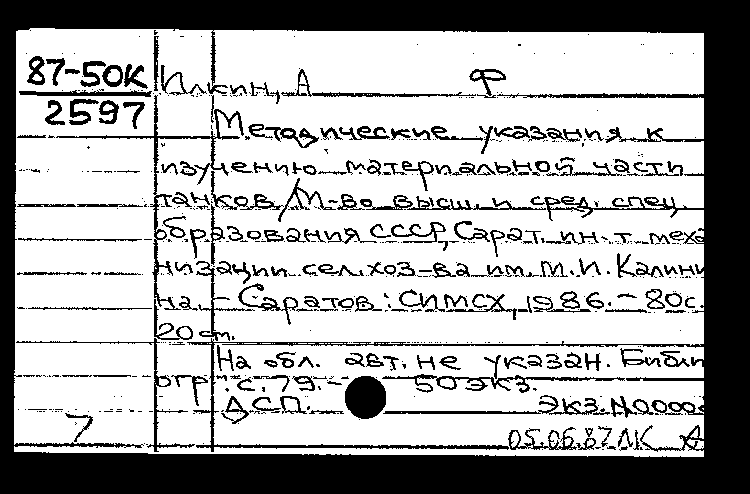 87-50К Илкин, А Ф
2597 Методические указания к
изучению материальной части
танков/М-во высш. и сред. спец.
образования СССР, Сарат. ин-т меха
низации сел. хоз-ва им. М.И. Калини
на. – Саратов: СИМСХ, 1986. – 80с.
20 см.
На обл. авт. не указан. Библи
огр.: с. 79. – 50 экз.
ДСП. Экз. N0000
7 05.06.87 ЛК